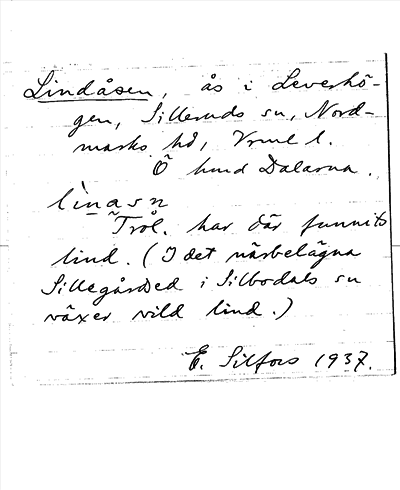 Lindåsen, ås i Leverhö-
gen, Silleruds sn, Nord-
marks hd, Vrml l.
Ö hmd Dalarna.
lìnasn
Trol. har där funnits
lind. (I det närbelägna
Sillegårdsed i Silbodals sn
växer vild lind.)
E. Silfors 1937.